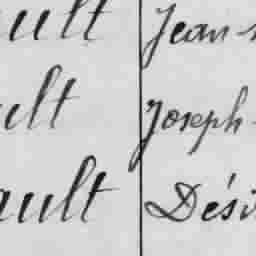 ault Jean-
ault Joseph-
ault Dési